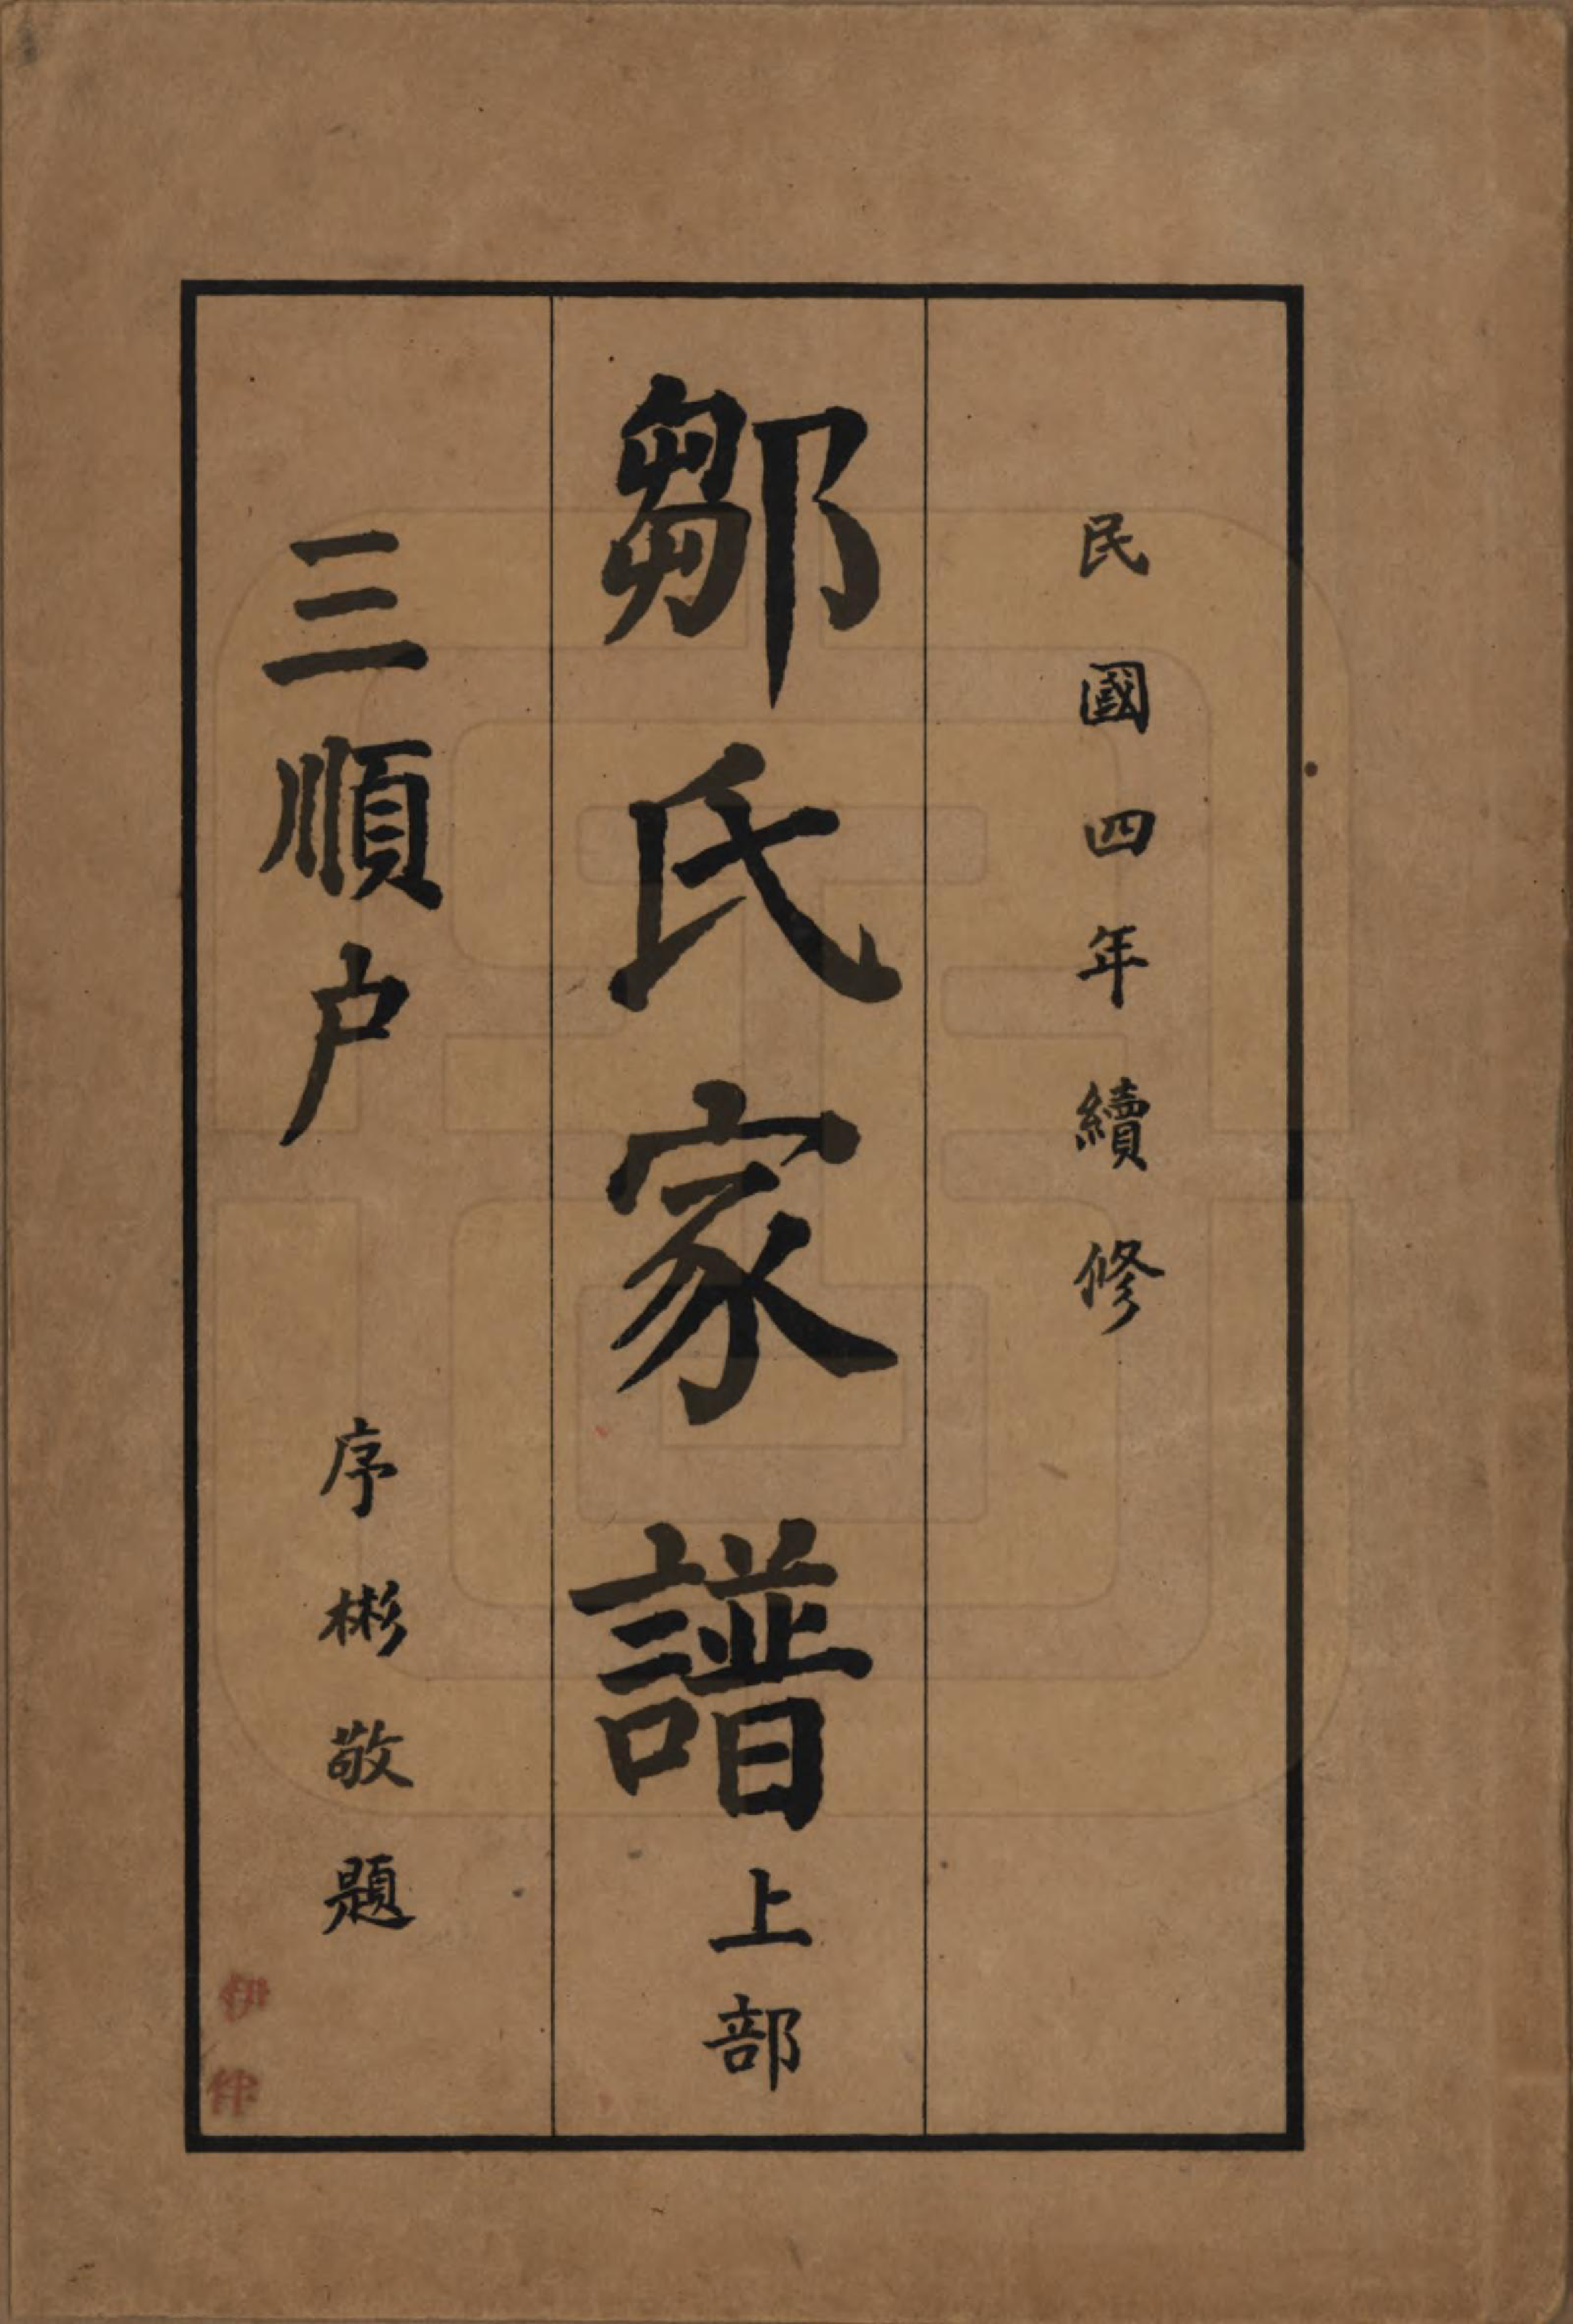 民國四年續修
鄒氏家譜上部
三順户
序彬敬題